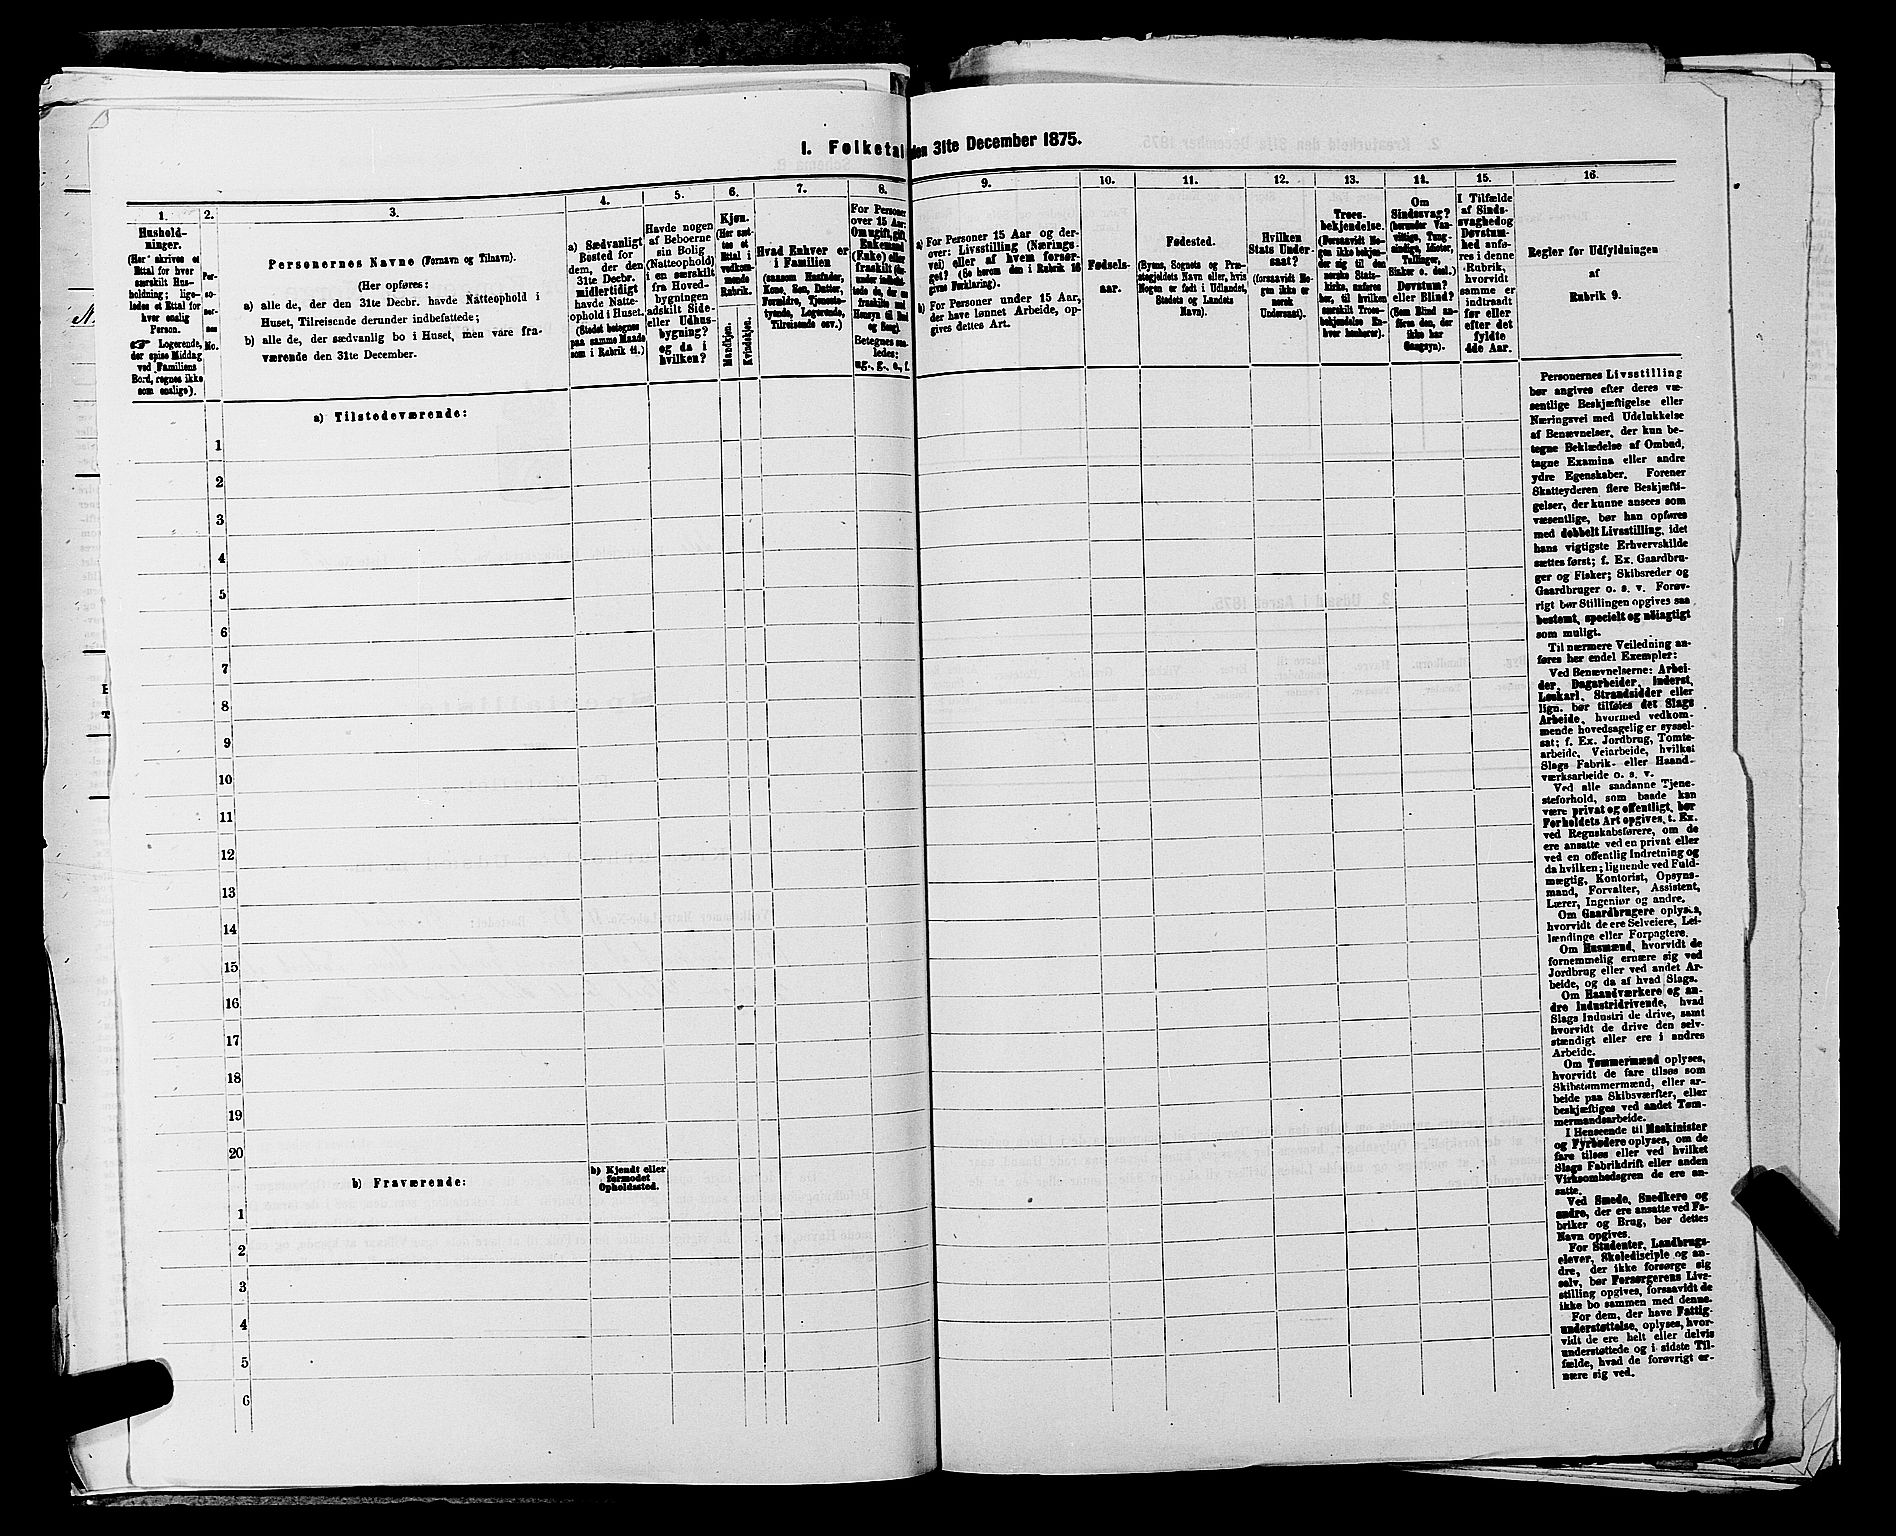 I. Folketal den 31te December 1875.
1.
Hushold-
ninger.
(Her skrives et
Ettal for hver
særskilt Hus-
holdning; lige-
ledes et Ettal for
hver enslig
Person.
☞ Logerende,
der spise Middag
ved Familiens
Bord, regnes ikke
som enslige).
2.
Per-
so-
ner-
nes
No.
3.
Personernes Navne (Fornavn og Tilnavn).
(Her opføres:
a) alle de, der den 31te Decbr. havde Natteophold i
Huset, Tilreisende derunder indbefattede;
b) alle de, der sædvanlig bo i Huset, men vare fra-
værende den 31te December.
4.
a) Sædvanligt
Bosted for
dem, der den
31te Decbr.
midlertidigt
havde Natte-
ophold i Huset.
(Stedet betegnes
paa samme Maade
som i Rubrik 11.)
5.
Havde nogen
af Beboerne
sin Bolig
(Natteophold)
i en særskilt
fra Hoved-
bygningen
adskilt Side-
eller Udhus-
bygning?
og da i
hvilken?
6.
Kjøn.
(Her sæt-
tes et
Ettal i
vedkom-
mende
Rubrik.
Mandkjøn.
Kvindekjøn.
7.
Hvad Enhver er
i Familien
(saasom Husfader,
Kone, Søn, Datter,
Forældre, Tjeneste-
tyende, Logerende,
Tilreisende osv.)
8.
For Personer
over 15 Aar:
Om ugift, gift,
Enkemand
(Enke) eller
fraskilt
Betegnes saa-
ledes:
ug., g., e., f.
9.
a) For Personer 15 Aar og der-
over: Livsstilling (Nærings-
vei) eller af hvem forsør-
get? (Se herom den i Rubrik 16
givne Forklaring).
b) For Personer under 15 Aar,
der have lønnet Arbeide, op-
gives dettes Art.
10.
Fødsels-
aar.
11.
Fødested.
(Byens, Sognets og Præ-
stegjeldets Navn eller, hvis
Nogen er født i Udlandet,
Stedets og Landets
Navn).
12.
Hvilken
Stats Under-
saat?
(forsaavidt No-
gen ikke er
norsk
Undersaat).
13.
Troes-
bekjendelse.
(Forsaavidt No-
gen ikke bekjen-
der sig til den
norske Stats-
kirke, anføres
her, til hvilken
særskilt Troes-
bekjendelse En-
hver henhører).
14.
Om
Sindssvag?
(herunder Van-
vittige, Tung-
sindige, Idioter,
Tullinger,
Sinker o. desl.)
Døvstum?
eller Blind?
(Som Blind an-
føres den, der
ikke har
Gangsyn).
15.
I Tilfælde
af Sinds-
svaghed og
Døvstum-
hed anfø-
res i denne
Rubrik,
hvorvidt
samme er
indtraadt
før eller
efter det
fyldte
4de Aar.
16.
Regler for Udfyldningen
af
Rubrik 9.
a) Tilstedeværende:
1
2
3
4
5
6
7
8
9
10
11
12
13
14
15
16
17
18
19
20
b) Fraværende:
b) Kjendt eller
formodet
Opholdssted.
1
2
3
4
5
6
Personernes Livsstilling
bør angives efter deres væ-
sentlige Beskjæftigelse eller
Næringsvei med Udelukkelse
af Benævnelser, der kun be-
tegne Beklædelse af Ombud,
tagne Examina eller andre
ydre Egenskaber. Forener
Skatteyderen flere Beskjæfti-
gelser, der kunne ansees som
væsentlige, bør han opføres
med dobbelt Livsstilling, idet
hans vigtigste Erhvervskilde
sættes først; f. Ex. Gaardbru-
ger og Fisker; Skibsreder og
Gaardbruger o. s. v. Forøv-
rigt bør Stillingen opgives saa
bestemt, specielt og nøiagtigt
som muligt.
Til nærmere Veiledning an-
føres her endel Exempler:
Ved Benævnelserne: Arbei-
der, Dagarbeider, Inderst,
Løskarl, Strandsidder eller
lign. bør tilføies det Slags
Arbeide, hvormed vedkom-
mende hovedsagelig er syssel-
sat; f. Ex. Jordbrug, Tomte-
arbeide, Veiarbeide, hvilket
Slags Fabrik- eller Haand-
værksarbeide o. s. v.
Ved alle saadanne Tjene-
steforhold, som baade kan
være privat og offentligt, bør
Forholdets Art opgives, t. Ex.
ved Regnskabsførere, om de
ere ansatte ved en privat eller
ved en offentlig Indretning og
da hvilken; lignende ved Fuld-
mægtig, Kontorist, Opsyns-
mand, Forvalter, Assistent,
Lærer, Ingeniør og andre.
Om Gaardbrugere oplyses,
hvorvidt de ere Selveiere, Lei-
lændinge eller Forpagtere.
Om Husmænd, hvorvidt de
fornemmelig ernære sig ved
Jordbrug eller ved andet Ar-
beide, og da af hvad Slags.
Om Haandværkere og an-
dre Industridrivende, hvad
Slags Industri de drive, samt
hvorvidt de drive den selv-
stændigt eller ere i andres
Arbeide.
Om Tømmermænd oplyses,
hvorvidt de fare tilsøs som
Skibstømmermænd, eller ar-
beide paa Skibsværfter, eller
beskjæftiges ved andet Tøm-
mermandsarbeide.
I Henseende til Maskinister
og Fyrbødere oplyses, om de
fare tilsøs eller ved hvilket
Slags Fabrikdrift eller anden
Virksomhedsgren de ere an-
satte.
Ved Smede, Snedkere og
andre, der ere ansatte ved Fa-
briker og Brug, bør dettes
Navn opgives.
For Studenter, Landbrugs-
elever, Skoledisciple og an-
dre, der ikke forsørge sig
selv, bør Forsørgerens Livs-
stilling opgives, forsaavidt de
ikke bo sammen med denne.
For dem, der have Fattig-
understøttelse, oplyses, hvor-
vidt de ere helt eller delvis
understøttede og i sidste Til-
fælde, hvad de forøvrigt er-
nære sig ved.